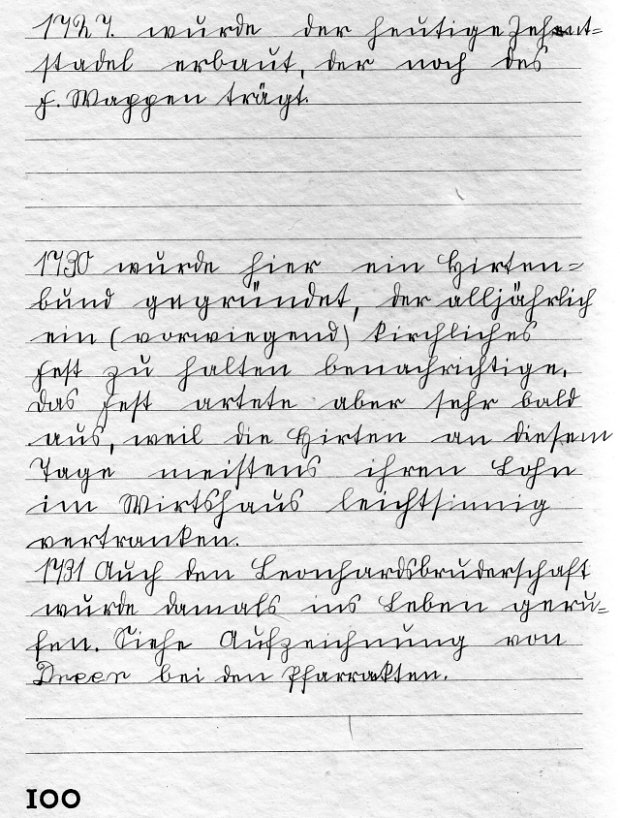 1727. wurde der heutige Zehent=
stadel erbaut, der noch des
F. Wappen trägt.
1730 wurde hier ein Hirten=
bund gegründet, der alljährlich
ein (vorwiegend) kirchliches
Fest zu halten benachrichtige.
Das Fest artete aber sehr bald
aus, weil die Hirten an diesem
Tage meistens ihren Lohn
im Wirtshaus leichtsinnig
vertranken.
1731 Auch den Leonhardsbruderschaft
wurde damals ins Leben geru=
fen. Siehe Aufzeichnung von
bei den Pfarrakten.
100